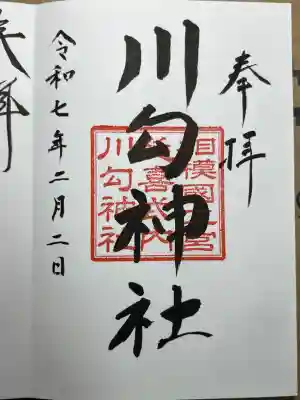 奉拝
川勾神社
相模國二宮
延喜式内
川勾神社
令和七年二月二日
奉拝